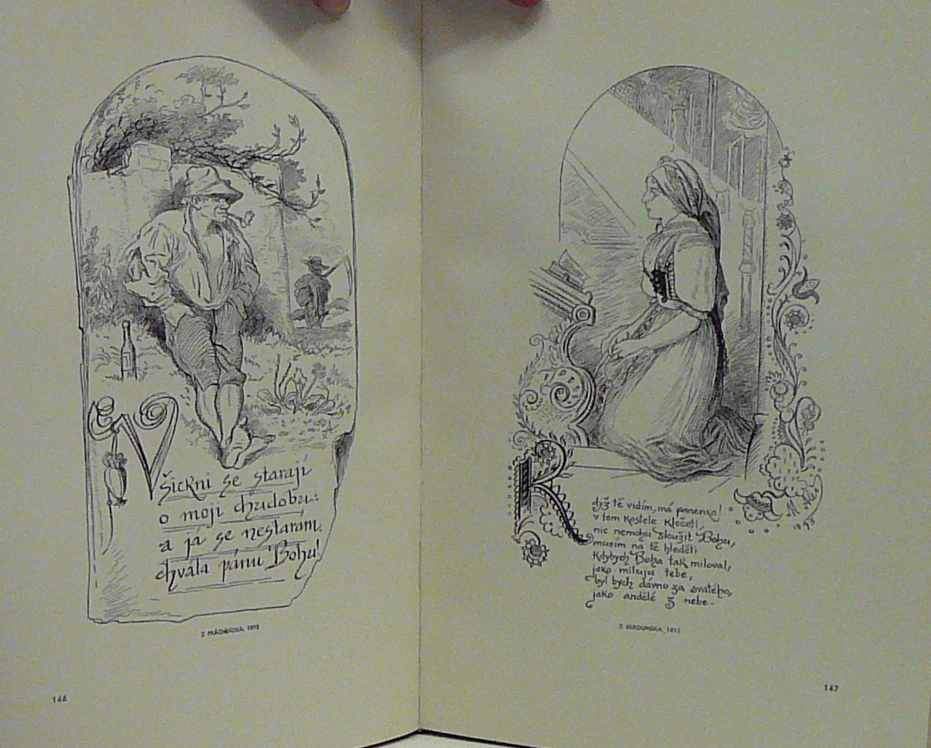 Všickni se starají
o moji chudobu:
a já se nestarám,
chvála pánu Bohu!
Z PRÁCHEŇSKA, 1913
146
Když tě vidím, má panenko!
v tom kostele klečeti,
nic nemohu sloužit Bohu,
musím na tě hleděti.
Kdybych Boha tak miloval,
jako miluju tebe,
byl bych dávno za svatého,
jako anděle z nebe.
147